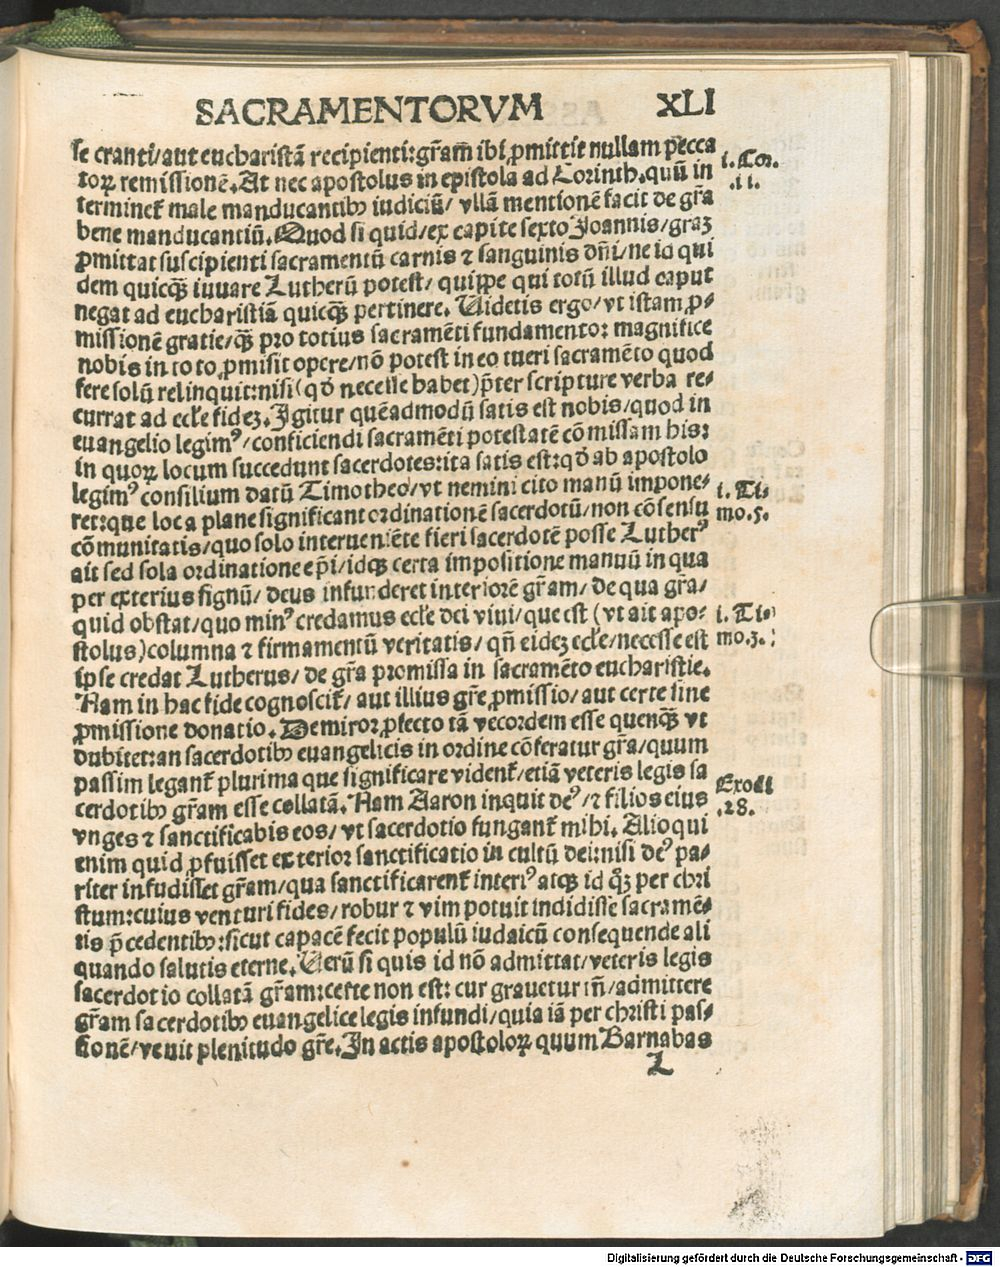 SACRAMENTORVM XLI
se cranti/aut eucharistā recipienti:gr̄am ibi ꝓmittit nullam pecca
toꝝ remissionē. At nec apostolus in epistola ad Corinth. quū in
terminet̄ male manducantibꝰ iudiciū/ vllā mentionē facit de gr̄a
bene manducantiū. Quod si quid/ex capite sexto Joannis/graꝫ
ꝓmittat suscipienti sacramentū carnis ⁊ sanguinis dn̄i/ne id qui
dem quicqꝫ iuuare Lutherū potest/ quippe qui totū illud caput
negat ad eucharistiā quicqꝫ pertinere. Videtis ergo/vt istam ꝓ-
missionē gratie/qꝫ pro totius sacramēti fundamento: magnifice
nobis in toto ꝓmisit opere/nō potest in eo tueri sacramēto quod
fere solū relinquit:nisi(qď necesse habet)p̄ter scripture verba re-
currat ad eccl̄e fideꝫ. Igitur quēadmodū satis est nobis/quod in
euangelio legimꝰ/conficiendi sacramēti potestatē cōmissam his:
in quoꝝ locum succedunt sacerdotes:ita satis est:qď ab apostolo
legimꝰ consilium datū Timotheo/vt nemini cito manū impone-
ret:que loca plane significant ordinationē sacerdotū/non cōsensu
cōmunitatis/quo solo interueniēte fieri sacerdotē posse Lutherꝰ
ait sed sola ordinatione ep̄i/idqꝫ certa impositione manuū in qua
per exterius signū/ deus infunderet interiorē gr̄am/ de qua gr̄a/
quid obstat/quo minꝰ credamus eccl̄e dei viui/que est (vt ait apo-
stolus)columna ⁊ firmamentū veritatis/ qn̄ eideꝫ eccl̄e/necesse est
ipse credat Lutherus/ de gr̄a promissa in sacramēto eucharistie.
Nam in hac fide cognoscit̄/ aut illius gr̄e ꝓmissio/aut certe sine
ꝓmissione donatio. Demiror ꝓfecto tā vecordem esse quenqꝫ vt
dubitet:an sacerdotibꝰ euangelicis in ordine cōferatur gr̄a/quum
passim legant̄ plurima que significare vident̄/etiā veteris legis sa
cerdotibꝰ gr̄am esse collatā. Nam Aaron inquit deꝰ/⁊ filios eius
vnges ⁊ sanctificabis eos/vt sacerdotio fungant̄ mihi. Alioqui
enim quid ꝓfuisset exterior sanctificatio in cultū dei:nisi deꝰ pa-
riter infudisset gr̄am/qua sanctificarent̄ interiꝰ atqꝫ id q̄ꝫ per chri
stum:cuius venturi fides/robur ⁊ vim potuit indidisse sacramē-
tis p̄cedentibꝰ:sicut capacē fecit populū iudaicū consequende ali
quando salutis eterne. Verū si quis id nō admittat/veteris legis
sacerdotio collatā gr̄am:certe non est: cur grauetur tn̄/admittere
gr̄am sacerdotibꝰ euangelice legis infundi/quia iā per christi pas-
sionē/venit plenitudo gr̄e. In actis apostoloꝝ quum Barnabas
L
i. Cor.
.11.
i. Ti-
mo.5.
i. Ti-
mo.3.
Exodi
.28.
Digitalisierung gefördert durch die Deutsche Forschungsgemeinschaft - DFG